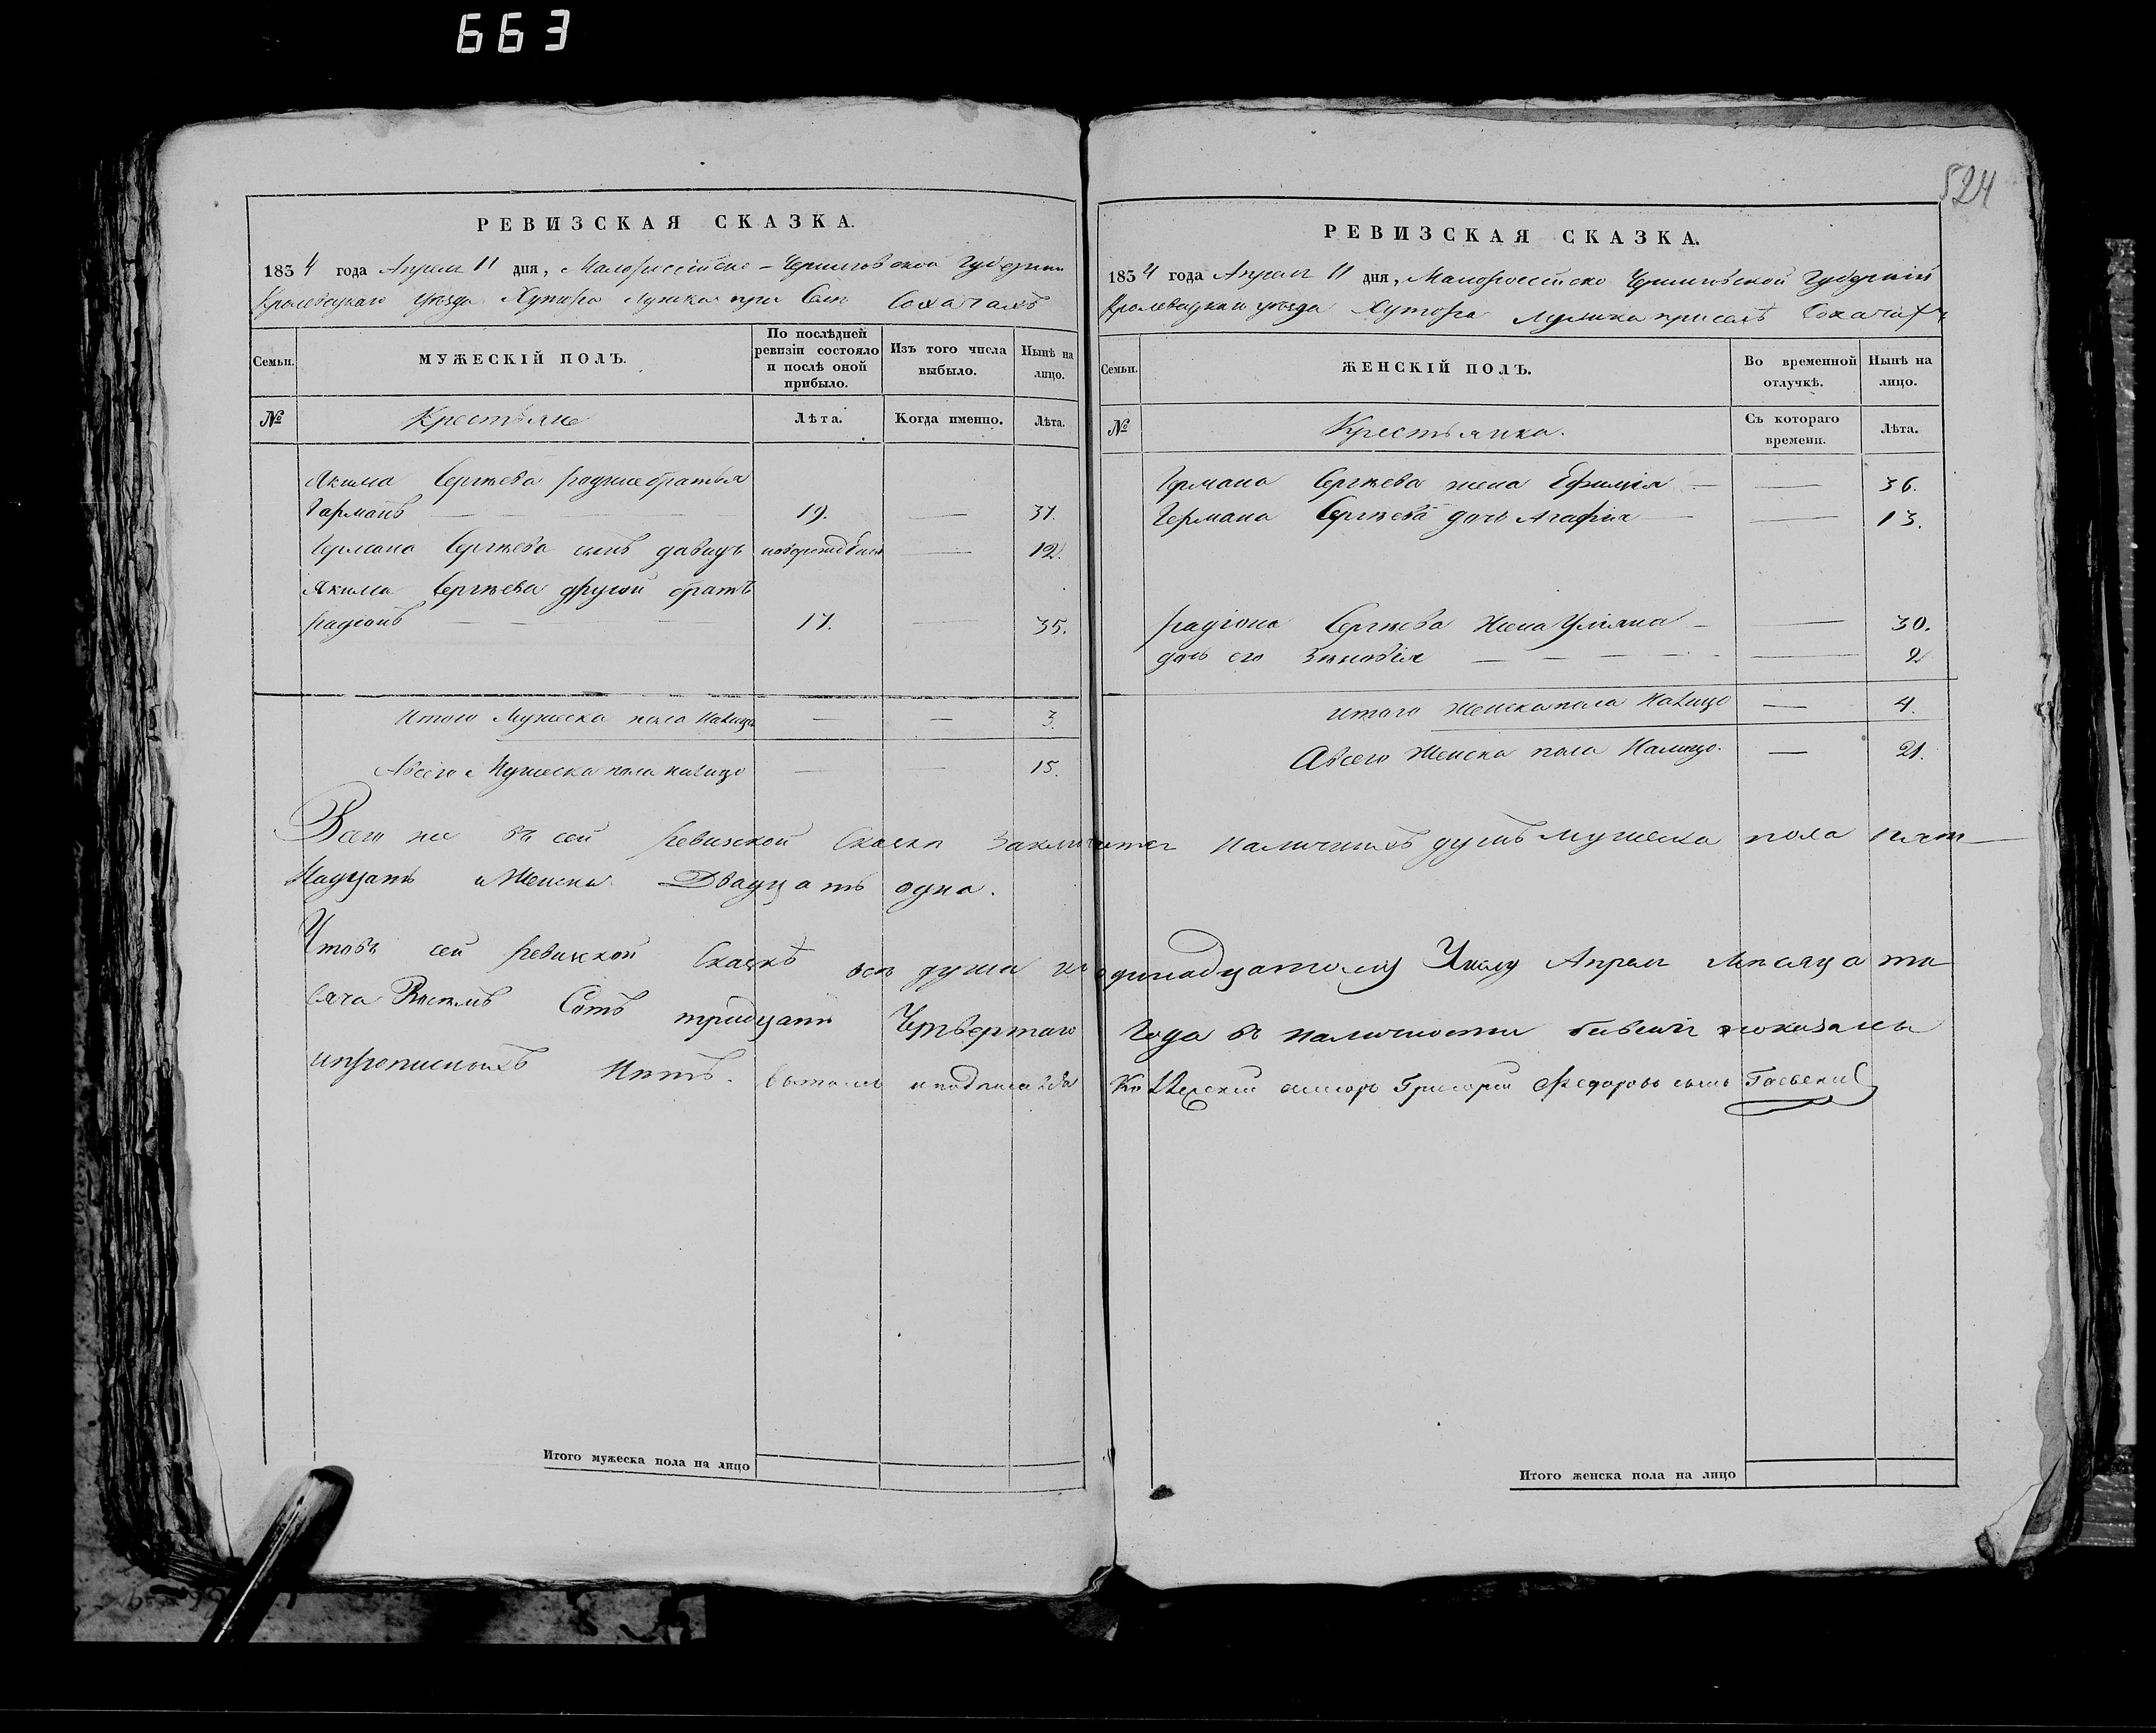 663
524
РЕВИЗСКАЯ СКАЗКА.
1834 года Апреля 11 дня, Малороссійско-Черниговской Губерніи
Кролевецкаго уезда Хутора при Селе Сохачахъ
Семьи. МУЖЕСКІЙ ПОЛЪ. По послѣдней ревизіи состояло и послѣ оной прибыло. Изъ того числа выбыло. Нынѣ на лицо.
№ Крестьяне Лѣта. Когда именно. Лѣта.
Якима Сергѣева родние братья
Гарманъ — 19. — 37.
Германа Сергѣева сынъ давидъ — 12.
Якима Сергѣева другой братъ
радіонъ — 17. — 35.
Итого Мужеска пола налицо — — 3.
Авсего Мужеска пола налицо — — 15.
РЕВИЗСКАЯ СКАЗКА.
1834 года Апреля 11 дня, Малороссійско Черниговской Губерніи
Кролевецкаго уезда Хутора при селѣ Сохачахъ
Семьи. ЖЕНСКІЙ ПОЛЪ. Во временной отлучкѣ. Нынѣ на лицо.
№ Крестьянки. Съ котораго времени. Лѣта.
Германа Сергѣева жена Ефимія — — 36.
Германа Сергѣева дочь Агафія — — 13.
радіона Сергѣева жена Уліяна — — 30.
дочь его Зиновія — — 2
итого женска пола налицо — 4.
Авсего Женска пола Налицо. — 21.
Всего же въ сей ревизской Скаски Заключается наличныхъ душъ мужеска пола пят-
надцать и Женска Двадцать одна.
Чтовъ сей ревизской Скаскѣ все души кь одинадцатому Числу Апреля Месяца ти-
сяча Восемъ Сотъ тридцать Четвертаго Года въ наличности бывшіе показаны
ипрописныхъ Нетъ. Григорій Федоровъ сынъ
Итого мужеска пола на лицо
Итого женска пола на лицо